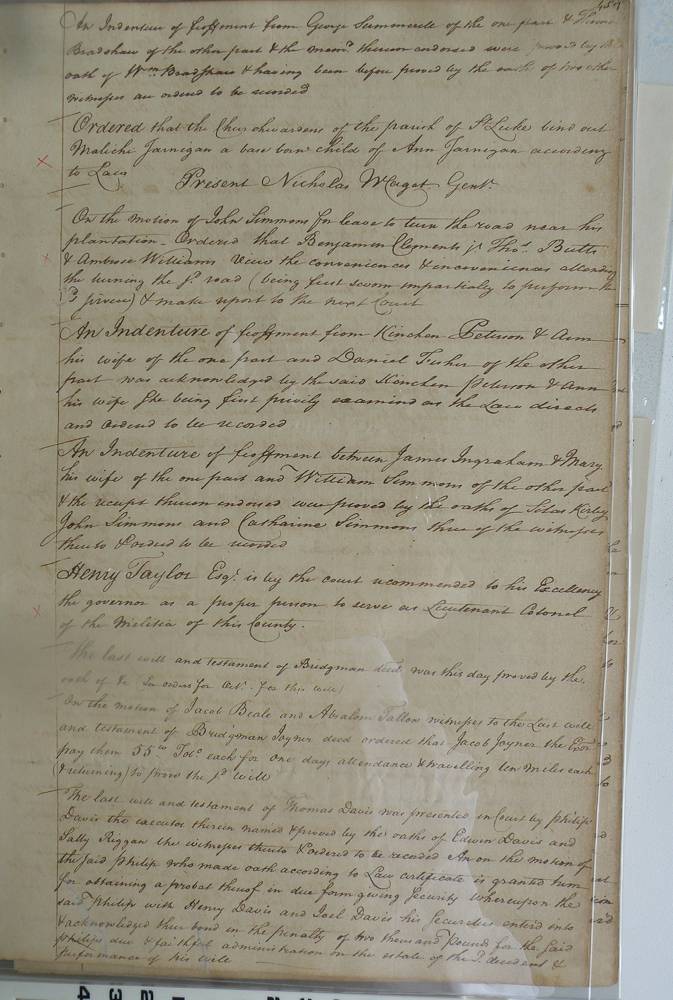 An Indenture of feoffment from George Summerell of the one part & Thomas
Bradshaw of the other part & the mem.m thereon endorsed were proved by the
oath of Wm Bradshaw & having been before proved by the oath of two other
witnesses are ordered to be recorded
Ordered that the Churchwardens of the parish of St Luke bind out
Malichi Jarnigan a base born child of Ann Jarnigan according
to Law
Present Nicholas Gent.
On the motion of John Simmons for leave to turn the road near his
plantation - Ordered that Benjamin Clements jr Thos. Butts
& Ambrose Williams View the conveniences & inconveniences attending
the turning the sd. road (being first sworn impartially to perform the
) & make report to the next Court
An Indenture of feoffment from Kinchen Peterson & Ann
his wife of the one part and Daniel Fisher of the other
part was acknowledged by the said Kinchen Peterson & Ann
his wife She being first privily examind as the Law directs
and Ordered to be recorded
An Indenture of feoffment between James Ingraham & Mary
his wife of the one part and William Simmons of the other part
& the receipt thereon endorsed were proved by the oaths of Silas Kirby
John Simmons and Catharine Simmons three of the witnesses
thereto & Ordered to be recorded
Henry Taylor Esqr. is by the court recommended to his Excellency
the governor as a proper person to serve as Lieutenant Colonel
of the Militia of this County.
The last will and testament of Bridgman decd was this day proved by the
oath of &c (see orders for Octr. for this will)
On the motion of Jacob Beale and Absalom Tallow witnesses to the Last will
and testament of Bridgman Joyner decd ordered that Jacob Joyner the Exor
pay them 55 lb Tobo. each for one days attendance & travelling ten miles each
(& returning) to prove the sd will
The last will and testament of Thomas Davis was presented in Court by philip
Davis the executor therein named & proved by the oaths of Edwin Davis and
Sally Riggan the witnesses thereto & Ordered to be recorded An on the motion of
the said philip who made oath according to Law certificate is granted him
for obtaining a probat thereof in due form giving Security whereupon the
said philip with Henry Davis and Joel Davis his Securities enter'd into
& acknowledged their bond in the penalty of two thousand pounds for the said
philips due & faithful administration on the estate of the sd. decedent &
performance of his will
4 3 2